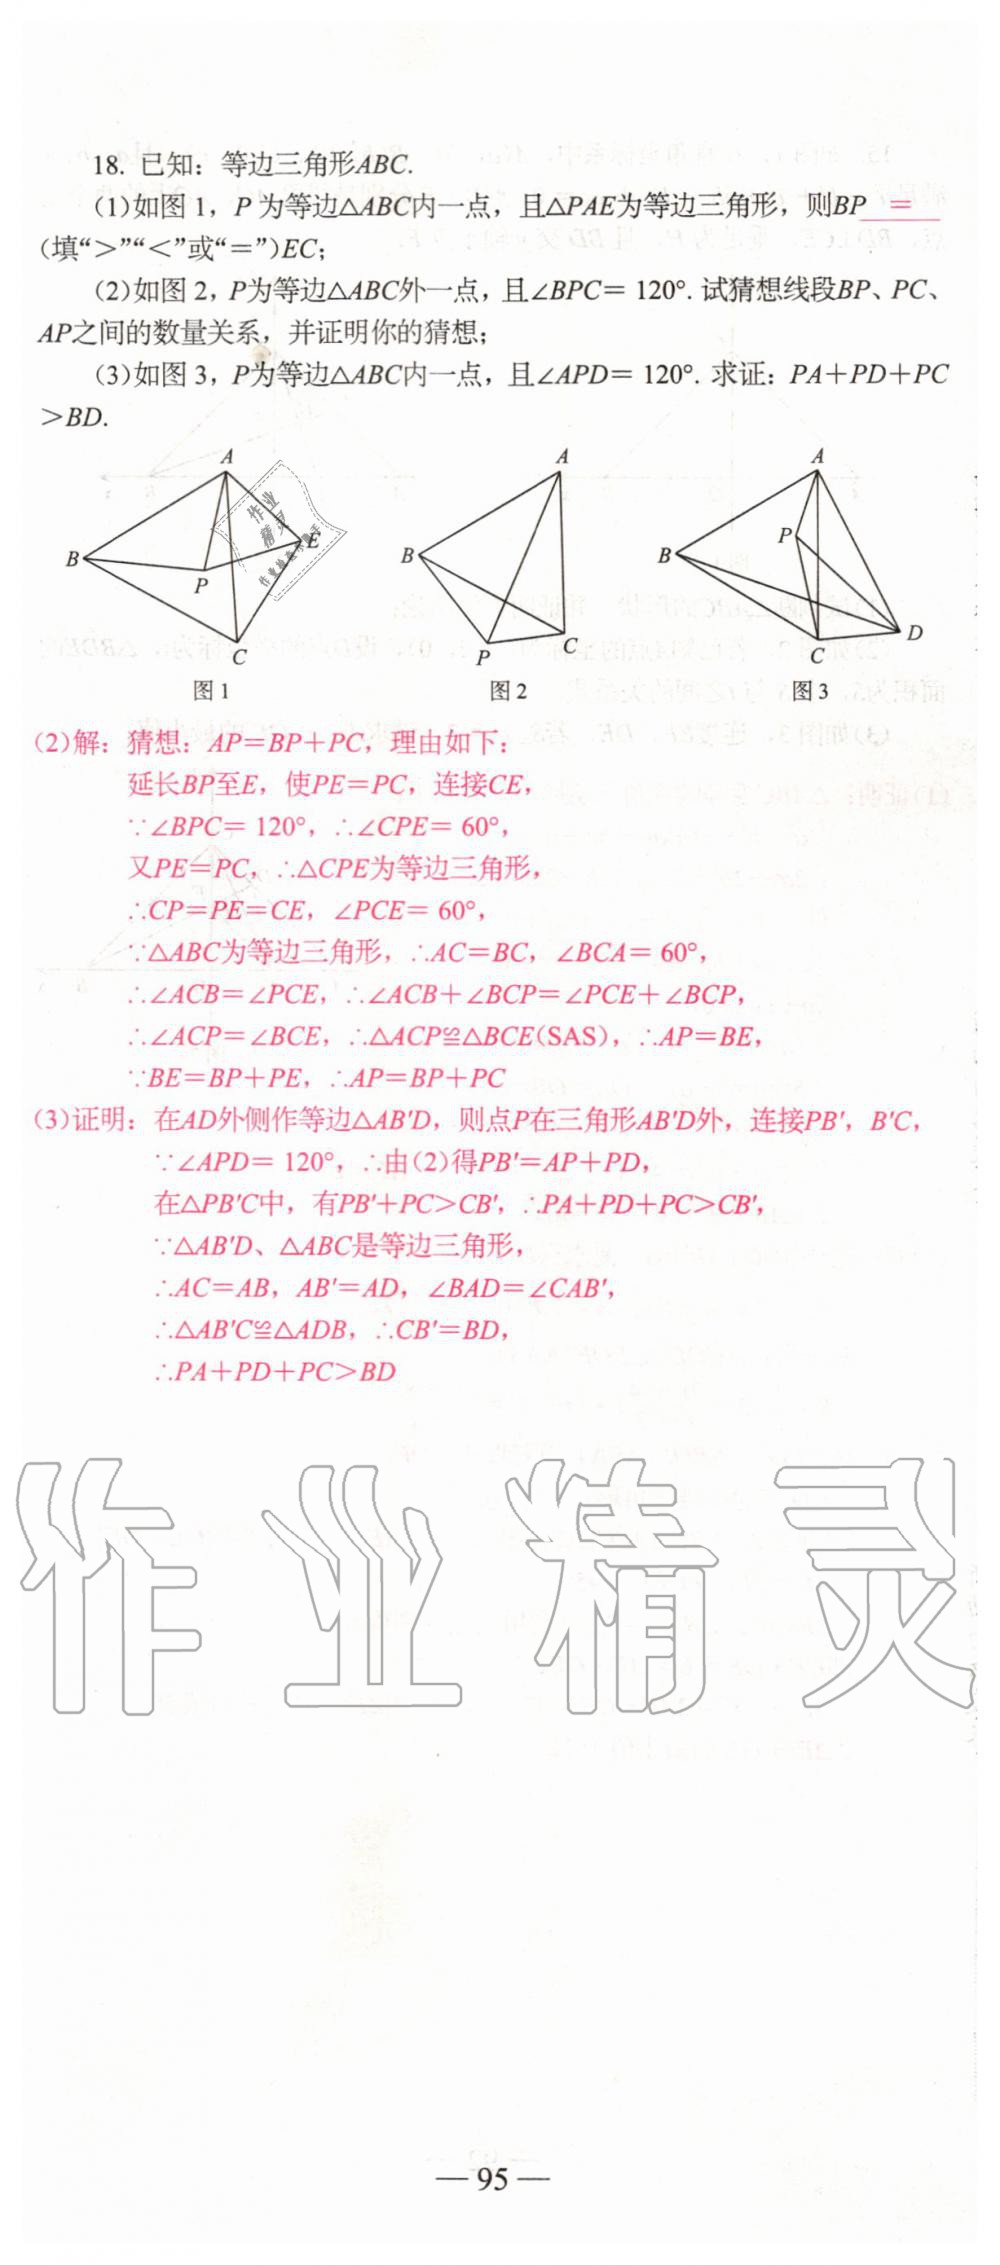 18. 已知：等边三角形ABC.
(1)如图 1，P 为等边△ABC内一点，且△PAE为等边三角形，则BP  ＝
(填“＞”“＜”或“＝”)EC；
(2)如图 2，P为等边△ABC外一点，且∠BPC＝ 120°. 试猜想线段BP、PC、
AP之间的数量关系，并证明你的猜想；
(3)如图 3，P为等边△ABC内一点，且∠APD＝ 120°. 求证：PA＋PD＋PC
＞BD.
A
B
P
E
C
图 1
A
B
P
C
图 2
A
B
P
C
D
图 3
作业
精灵
(2)解：猜想：AP＝BP＋PC，理由如下：
延长BP至E，使PE＝PC，连接CE，
∵∠BPC＝ 120°，∴∠CPE＝ 60°，
又PE＝PC，∴△CPE为等边三角形，
∴CP＝PE＝CE，∠PCE＝ 60°，
∵△ABC为等边三角形，∴AC＝BC，∠BCA＝ 60°，
∴∠ACB＝∠PCE，∴∠ACB＋∠BCP＝∠PCE＋∠BCP，
∴∠ACP＝∠BCE，∴△ACP≌△BCE(SAS)，∴AP＝BE，
∵BE＝BP＋PE，∴AP＝BP＋PC
(3)证明：在AD外侧作等边△AB′D，则点P在三角形AB′D外，连接PB′，B′C，
∵∠APD＝ 120°，∴由(2)得PB′＝AP＋PD，
在△PB′C中，有PB′＋PC＞CB′，∴PA＋PD＋PC＞CB′，
∵△AB′D、△ABC是等边三角形，
∴AC＝AB，AB′＝AD，∠BAD＝∠CAB′，
∴△AB′C≌△ADB，∴CB′＝BD，
∴PA＋PD＋PC＞BD
作业精灵
— 95 —